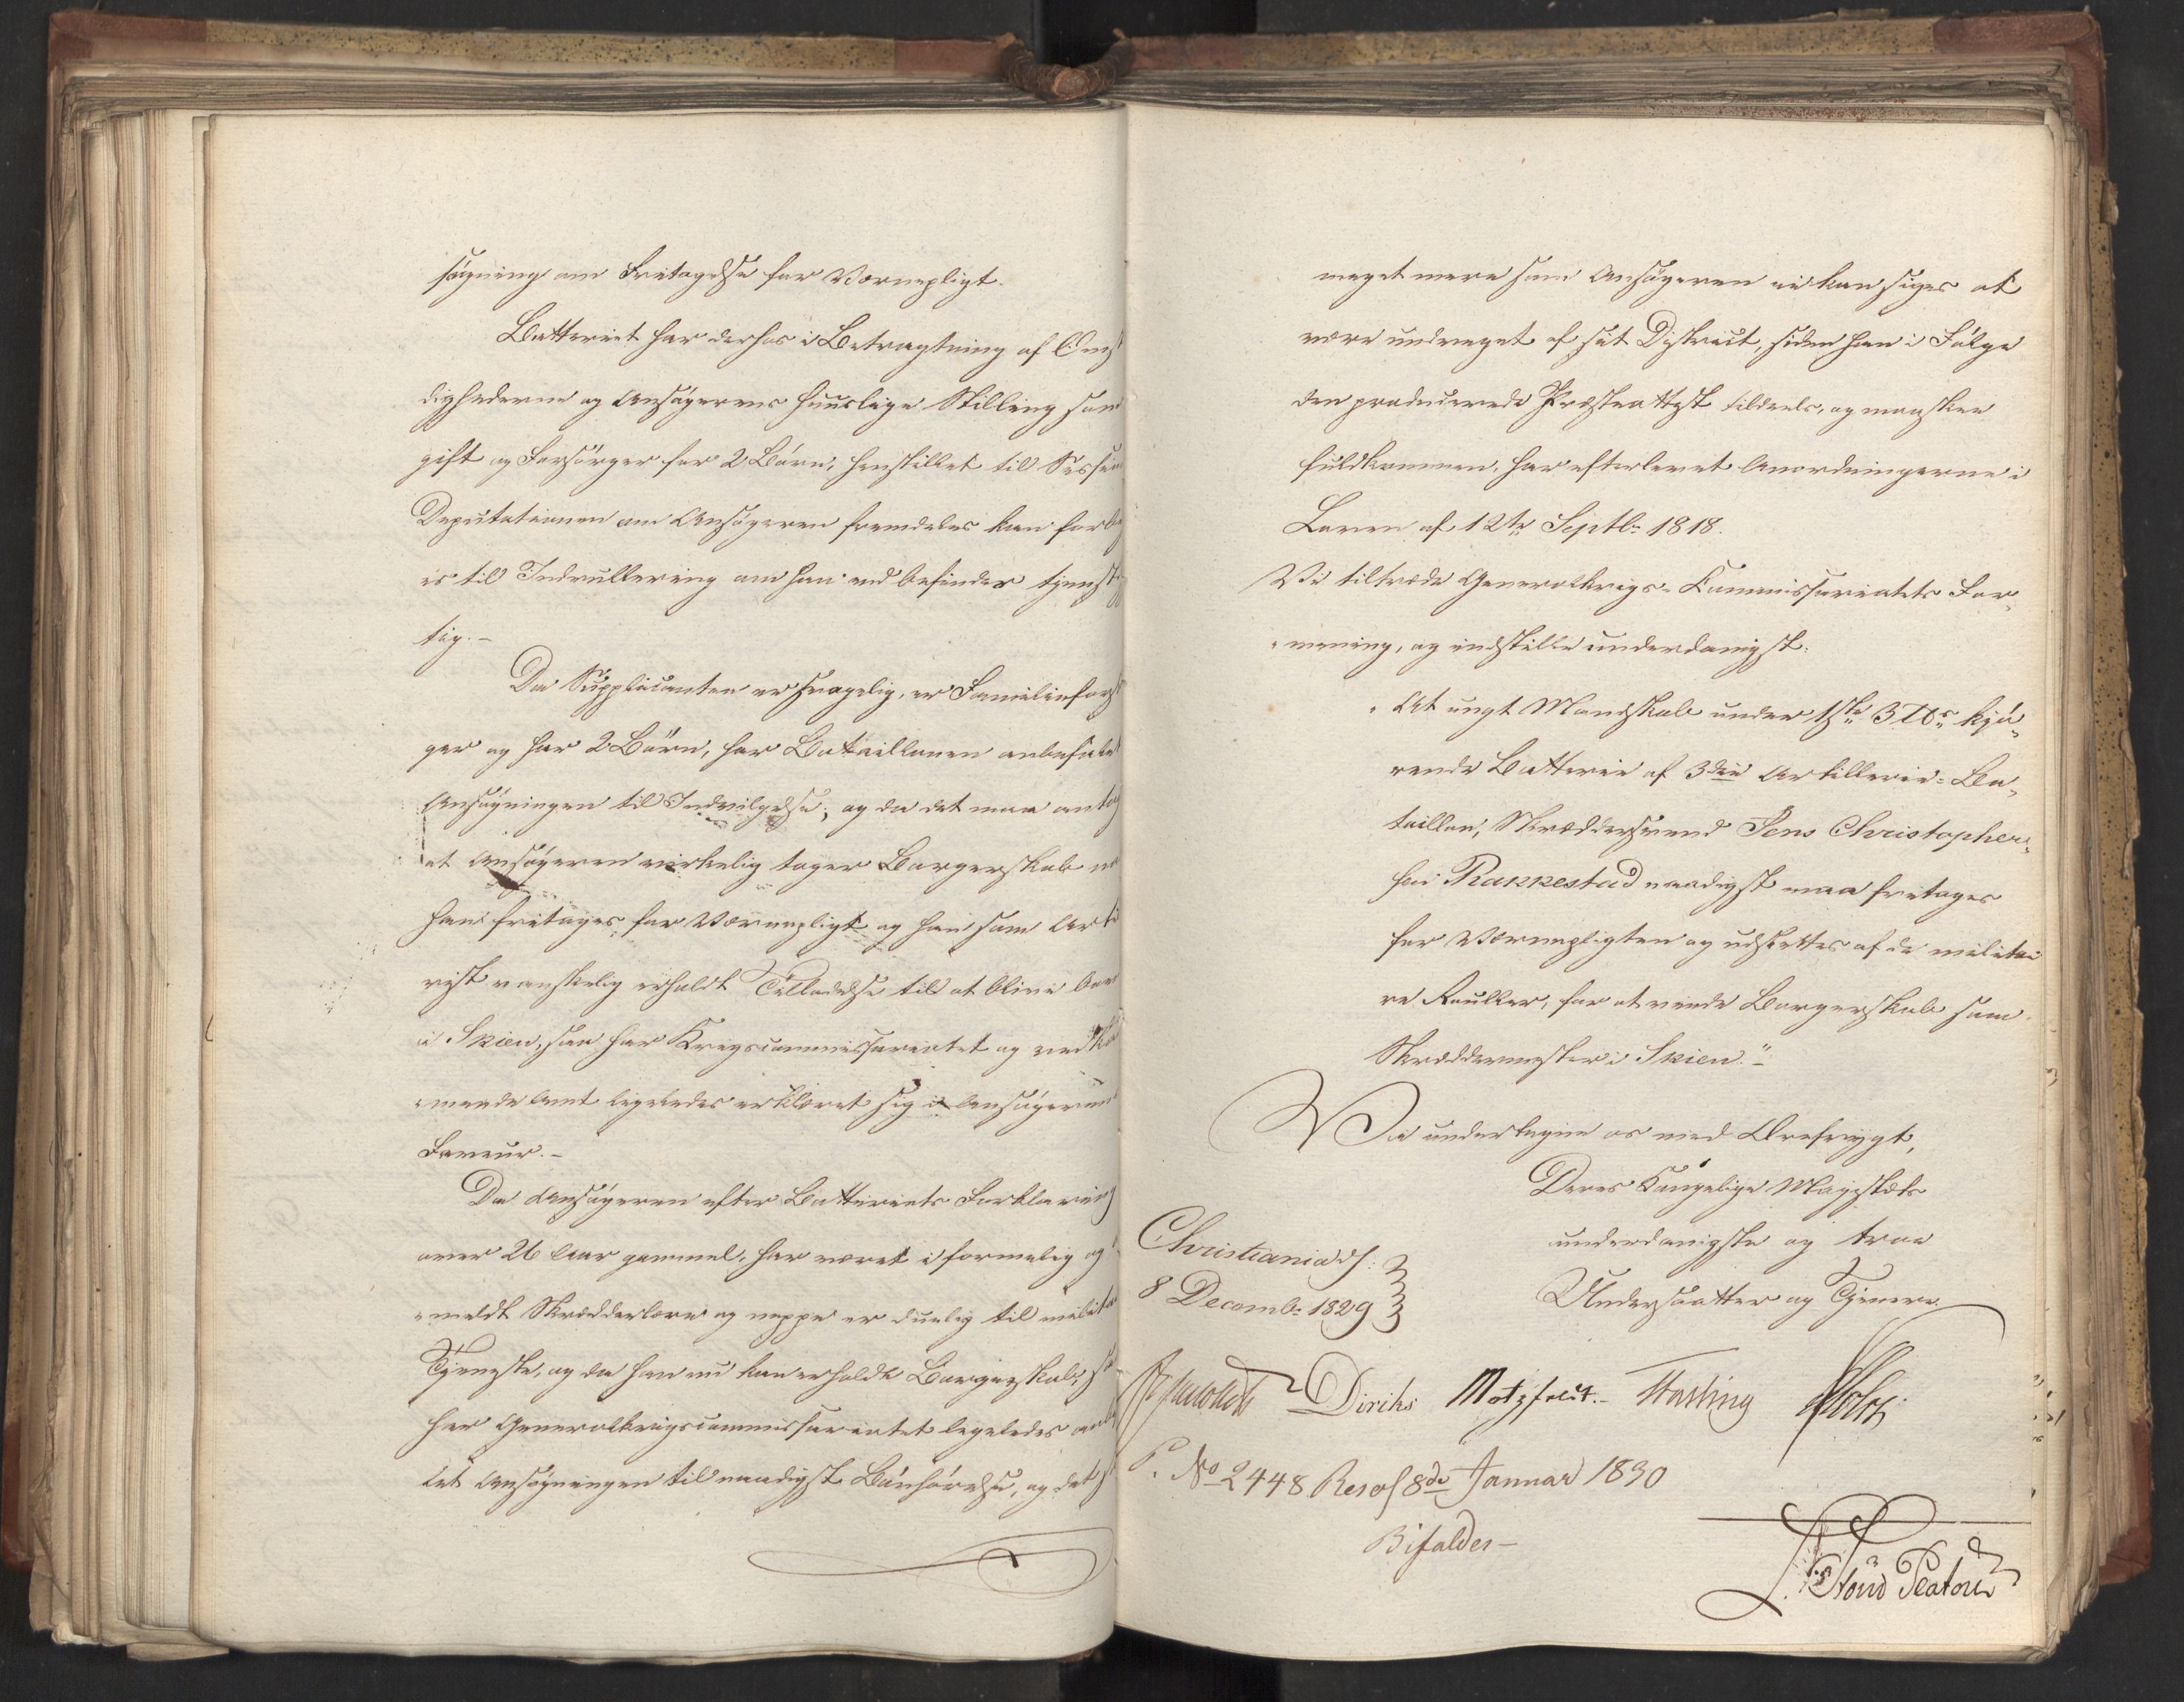 søgning om Fritagelse for Værnepligt.
Batteriet har derhos i Betragtning af Omst
dighederne og Ansøgerens huuslige Stilling som
gift og Forsørger for 2 Børn, henstillet til Session
Deputationen om Ansøgeren fremdeles kan forbi
es til Indrullering om han end befindes tjenst
tig.-
Da Supplicanten er svagelig, er Familieforsø
ger og har 2 Børn, har Bataillonen anbefalet
Ansøgningen til Indvilgelse; og da det maa antag
at Ansøgeren virkelig tager Borgerskab
han fritages for Værnepligt og han som Arti
rist vanskelig erholdt Tilladelse til at blive
i Skien, saa har Krigscommissariatet og vedko
mmende Amt ligeledes erklæret sig i Ansøgerens
Faveur.-
Da Ansøgeren efter Batteriets Forklaring
over 26 Aar gammel, har været i formelig og
meldt Skrædderlære og neppe er duelig til milita
Tjeneste, og da han nu kan erholde Borgerskab,
har Generalkrigscommissariatet ligeledes anbe
let Ansøgningen til naadigst Bønhørelse, og det
meget mere som Ansøgeren ei kan siges at
være undveget af sit District, siden han i Følge
den producerede Præsteattest tildeels, og maaskee
fuldkommen, har efterlevet Anordningerne i
Loven af 12te Septbr 1818.
Vi tiltræde Generalkrigs-Kommissariatets For-
mening, og indstille underdanigst:
"At ungt Mandskab under 1ste 3 ℔s kjø-
rende Batterie af 3die Artillerie-Ba-
taillon, Skræddersvend Jens Christopher-
sen Rakkestad naadigst maa fritages
for Værnepligten og udslettes af de militai
re Rouller, for at vinde Borgerskab som
Skræddermester i Skien."-
Vi undertegne os med Ærefrygt,
Deres Kongelige Majestæts
underdanigste og troe
Undersaatter og Tjenere.
Christiania d:
8 Decemb: 1829
Diriks Motzfeldt.- Fasting Holst
P. No 2448 Resol 8de Januar 1830
Bifaldes-